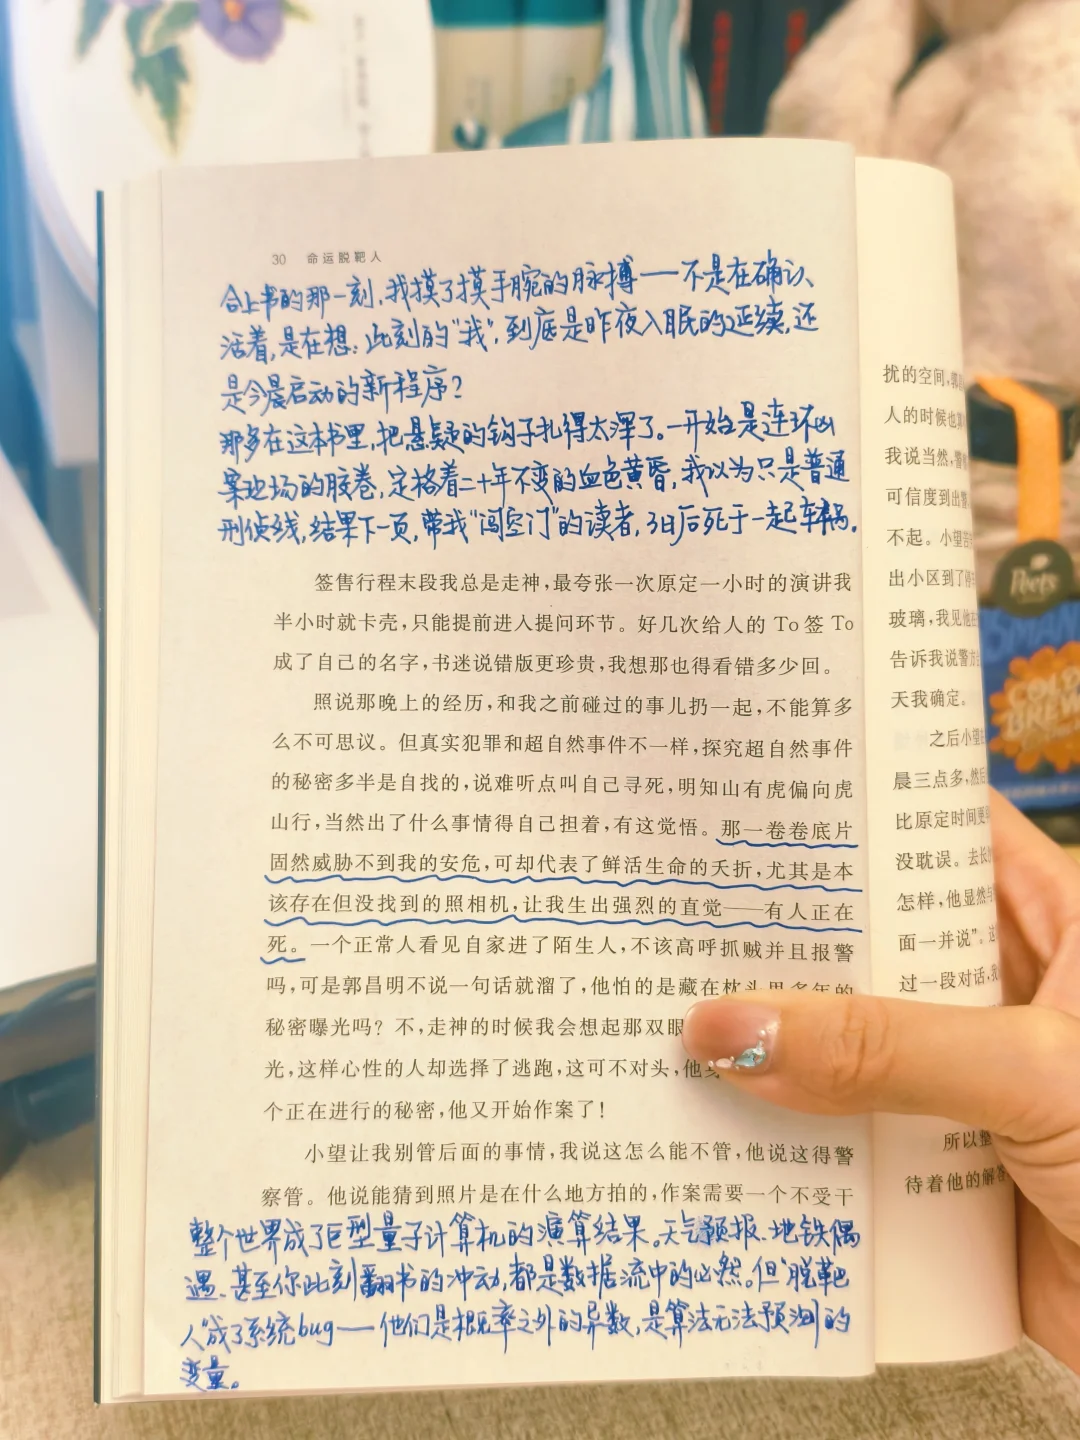 30 命运脱靶人
合上书的那一刻,我摸了摸手腕的脉搏——不是在确认
活着,是在想:此刻的“我”,到底是昨夜入眠的延续,还
是今晨启动的新程序?
那多在这本书里,把悬疑的钩子扎得太深了。一开始是连环凶
案现场的胶卷,定格着二十年不变的血色黄昏,我以为只是普通
刑侦线,结果下一页,带我“闯空门”的读者,3日后死于一起车祸。
签售行程末段我总是走神,最夸张一次原定一小时的演讲我
半小时就卡壳,只能提前进入提问环节。好几次给人的 To 签 To
成了自己的名字,书迷说错版更珍贵,我想那也得看错多少回。
照说那晚上的经历,和我之前碰过的事儿扔一起,不能算多
么不可思议。但真实犯罪和超自然事件不一样,探究超自然事件
的秘密多半是自找的,说难听点叫自己寻死,明知山有虎偏向虎
山行,当然出了什么事情得自己担着,有这觉悟。那一卷卷底片
固然威胁不到我的安危,可却代表了鲜活生命的夭折,尤其是本
该存在但没找到的照相机,让我生出强烈的直觉——有人正在
死。一个正常人看见自家进了陌生人,不该高呼抓贼并且报警
吗,可是郭昌明不说一句话就溜了,他怕的是藏在枕头里多年的
秘密曝光吗?不,走神的时候我会想起那双眼
光,这样心性的人却选择了逃跑,这可不对头,他
个正在进行的秘密,他又开始作案了!
小望让我别管后面的事情,我说这怎么能不管,他说这得警
察管。他说能猜到照片是在什么地方拍的,作案需要一个不受干
整个世界成了巨型量子计算机的演算结果。天气预报、地铁偶
遇、甚至你此刻翻书的冲动,都是数据流中的必然。但“脱靶
人”成了系统bug——他们是概率之外的异数,是算法无法预测的
变量。
扰的空间,
人的时候也
我说当然,警
可信度到出
不起。小望
出小区到了
玻璃,我见他
告诉我说警方
天我确定。
之后小望
晨三点多,然后
比原定时间更
没耽误。去
怎样,他显然
面一并说”。
过一段对话,我
所以整
待着他的解答
Peets
COLD
BREW